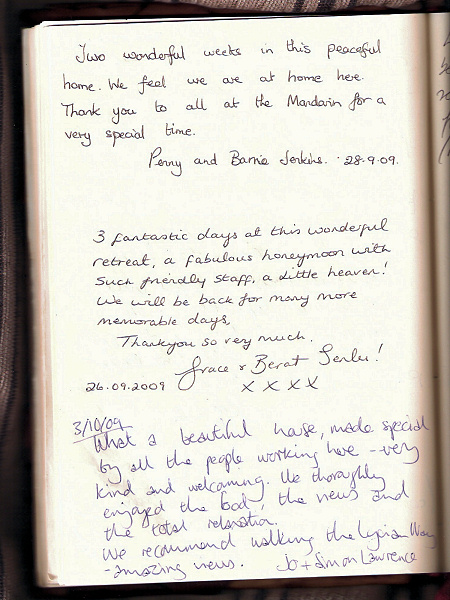 Two wonderful weeks in this peaceful
home. We feel we are at home here.
Thank you to all at the Mandarin for a
very special time.
Penny and Barrie Jenkins. 28-9-09.
3 fantastic days at this wonderful
retreat, a fabulous honeymoon with
such friendly staff, a little heaven!
We will be back for many more
memorable days,
Thankyou so very much.
Grace & Berat
26.09.2009 x x x x
3/10/09
What a beautiful house, made special
by all the people working here - very
kind and welcoming. We thoroughly
enjoyed the food, the views and
the total relaxation.
We recommend walking the Lycian Way
- amazing views. Jo + Simon Lawrence